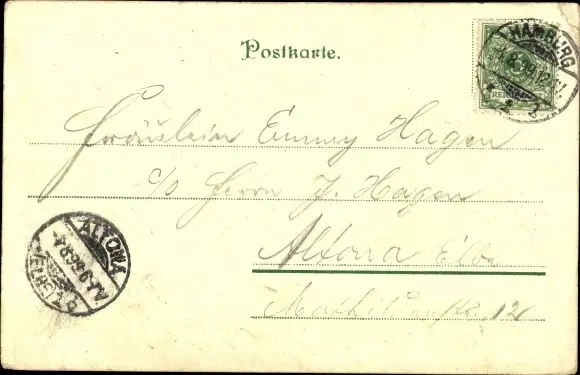 Postkarte.
HAMBURG
REICHSPOST
Fräulein Emmy Hagen
c/o Herrn J. Hagen
Altona Elbe
Mathildenstr. 12
ALTONA